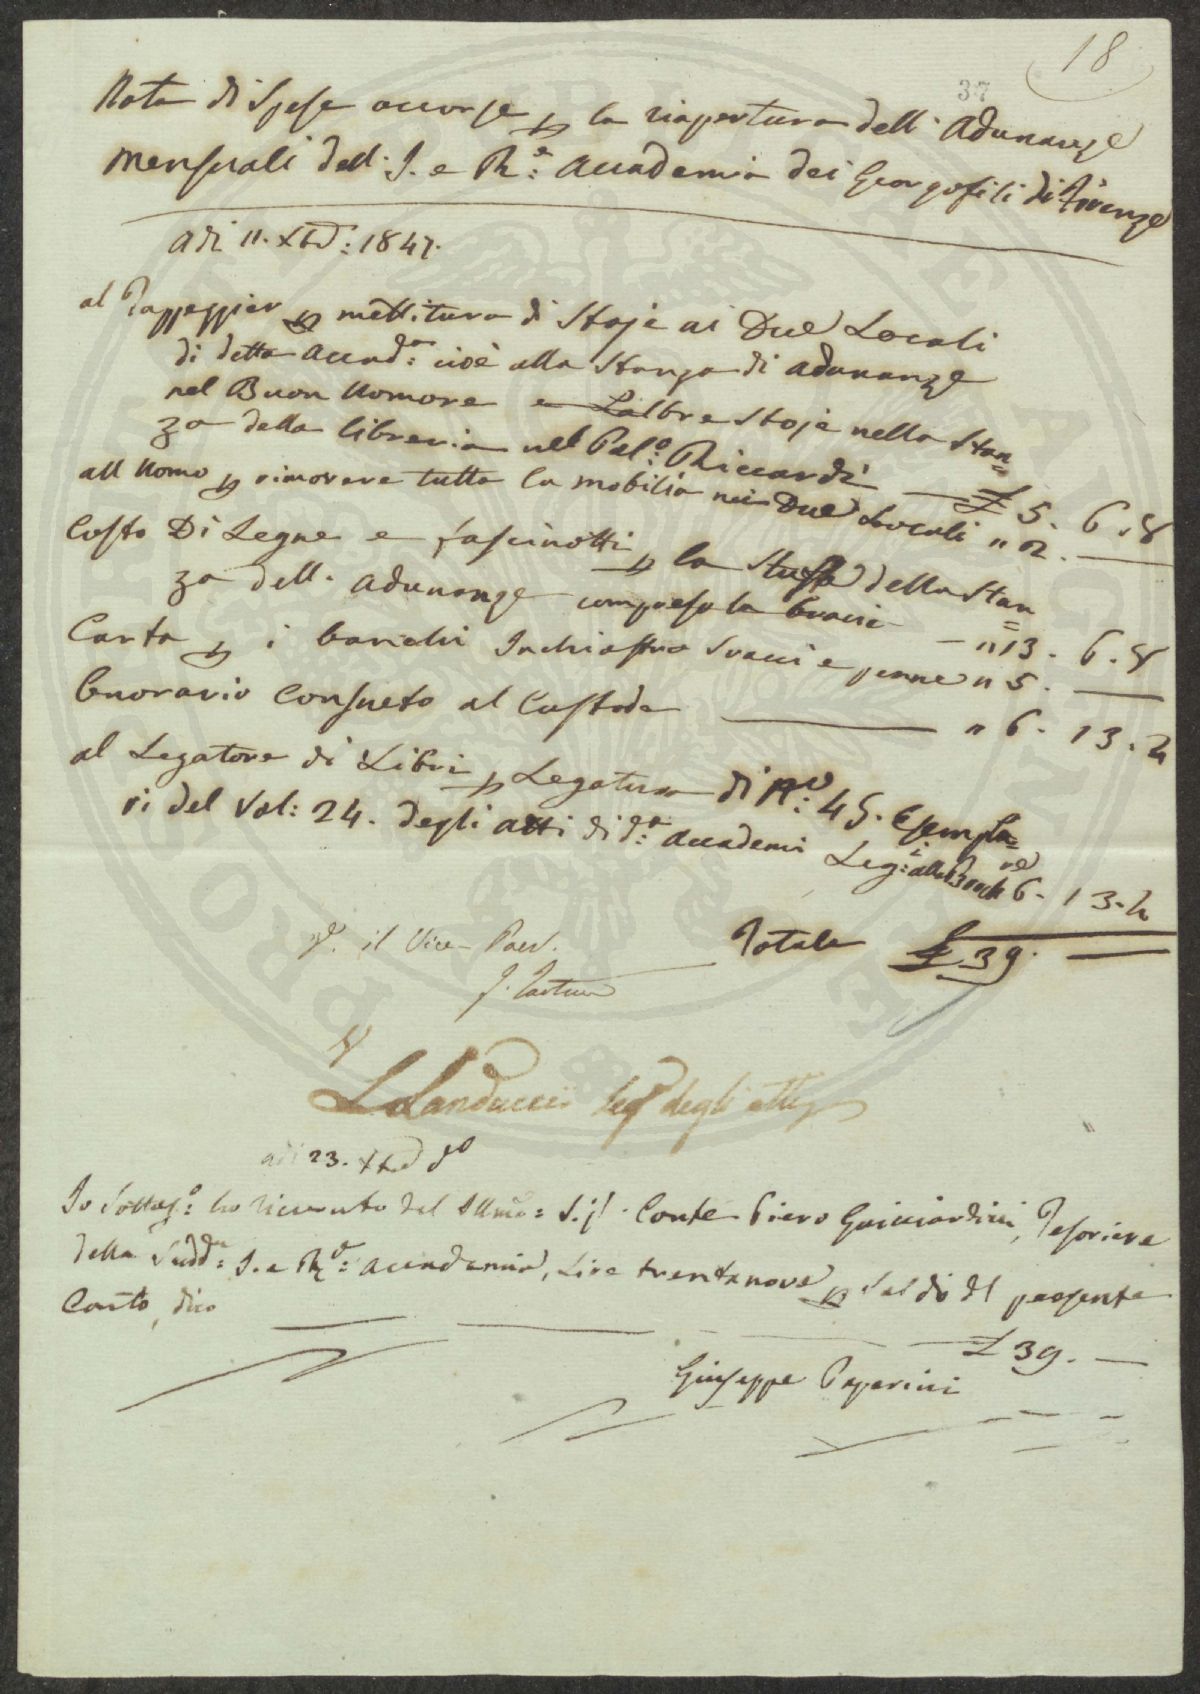 18
37
Nota di Spese occorse p la riapertura dell' Adunanze
Mensuali dell' I. e R.e Accademia dei Georgofili di Firenze
Adi 11. Xbre: 1847.
al Tappeggier p mettitura di Stoje ai Due Locali
di detta Accad.a cioè alla Stanza di Adunanze
nel Buon Uomore e L'altre Stoje nella Stan=
za della libreria nel Pal.o Riccardi — £ 5. 6. 8
all Uomo p rimovere tutta la mobilia nei Due Locali " 2. —
Costo Di Legne e fascinotti p la Stufa della Stan=
za dell' Adunanze compreso la brace — " 13. 6. 8
Carta p i banchi Inchiostro e penne " 5. —
Onorario Consueto al Custode — " 6. 13. 4
al Legatore di Libri p Legatura di N.o: 45. Esempla=
ri del Vol: 24. degli atti di d.a Accademi Leg.i: alla 6. 13. 4
Totale £ 39. —
Vo. il Vice-Pres.
L Landucci Seg. degli atti
adi 23. Xbre do
Io Sottos.o: ho ricevuto dal Illmo= Sig. Conte Piero Guicciardini, Tesoriere
della Sudd.a: I. e R.e: Accademia, Lire trentanove p Saldo del presente
Conto, dico
£ 39. —
Giuseppe Peperini